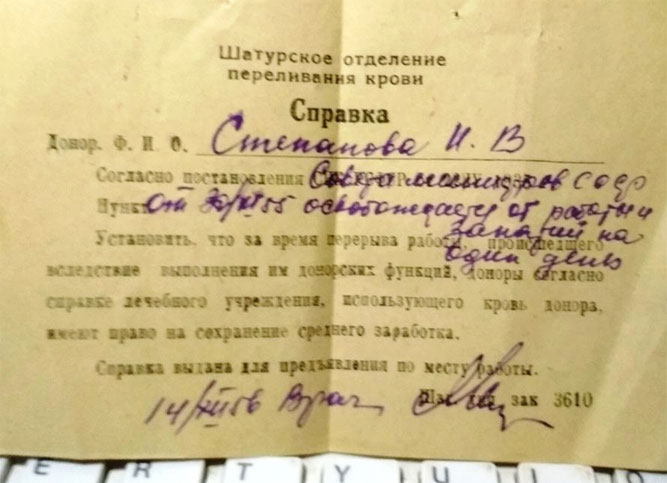 Шатурское отделение
переливания крови
Справка
Донор. Ф. И О. Степанова И. В
Согласно постановления Совета министров СССР
Пункт от 30/XII 55 освобождается от работы и
занятий на
Установить, что за время перерыва работы, происшедшего
один день
вследствие выполнения им донорских функций, доноры согласно
справке лечебного учреждения, использующего кровь донора,
имеют право на сохранение среднего заработка.
Справка выдана для предъявления по месту работы.
14/XII 56 Врач
зак 3610
E R T Y U I O